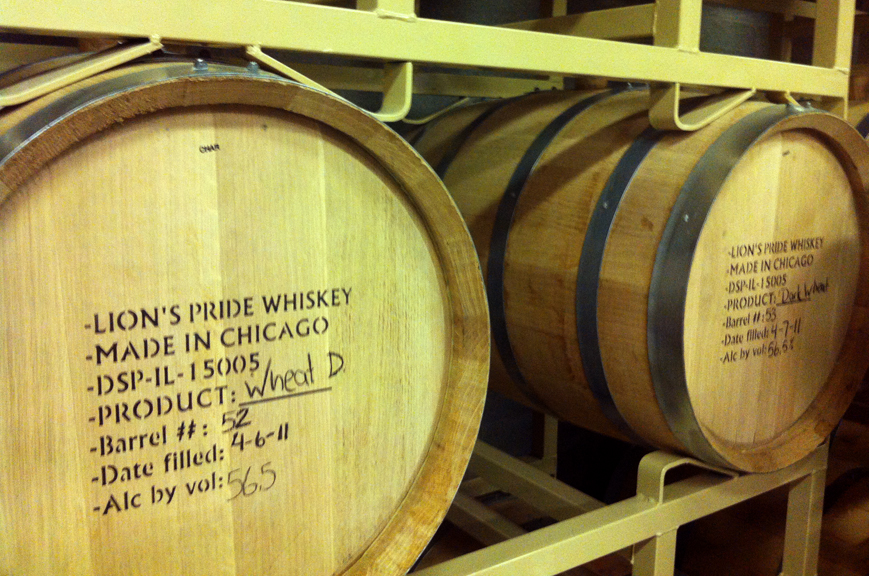 CHAR
-LION'S PRIDE WHISKEY
-MADE IN CHICAGO
-DSP-IL-15005
-PRODUCT: Wheat D.
-Barrel #: 52
-Date filled: 4-6-11
-Alc by vol: 56.5
-LION'S PRIDE WHISKEY
-MADE IN CHICAGO
-DSP-IL-15005
-PRODUCT: Dark Wheat
-Barrel #: 53
-Date filled: 4-7-11
-Alc by vol: 56.5%